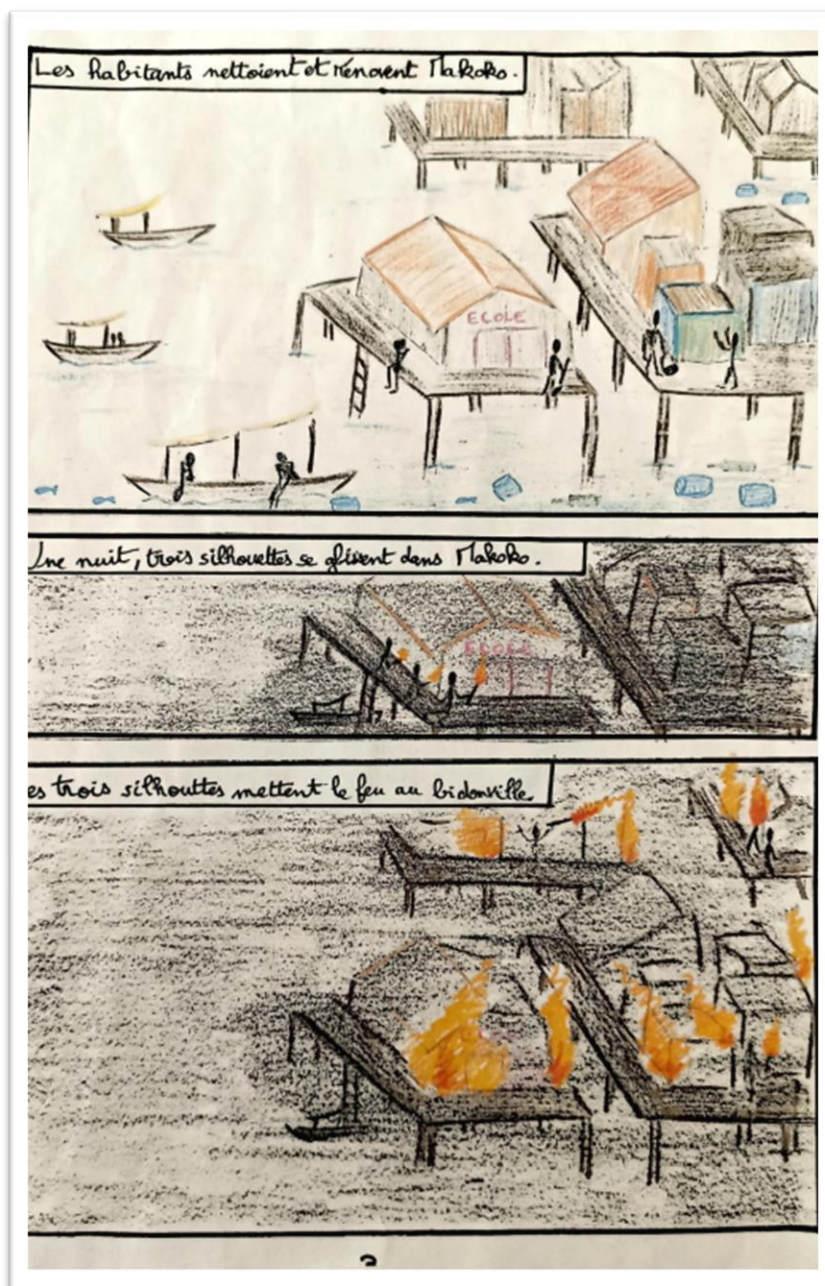 Les habitants nettoient et rénovent Makoko.
ECOLE
Une nuit, trois silhouettes se glissent dans Makoko.
ECOLE
es trois silhouttes mettent le feu au bidonville.